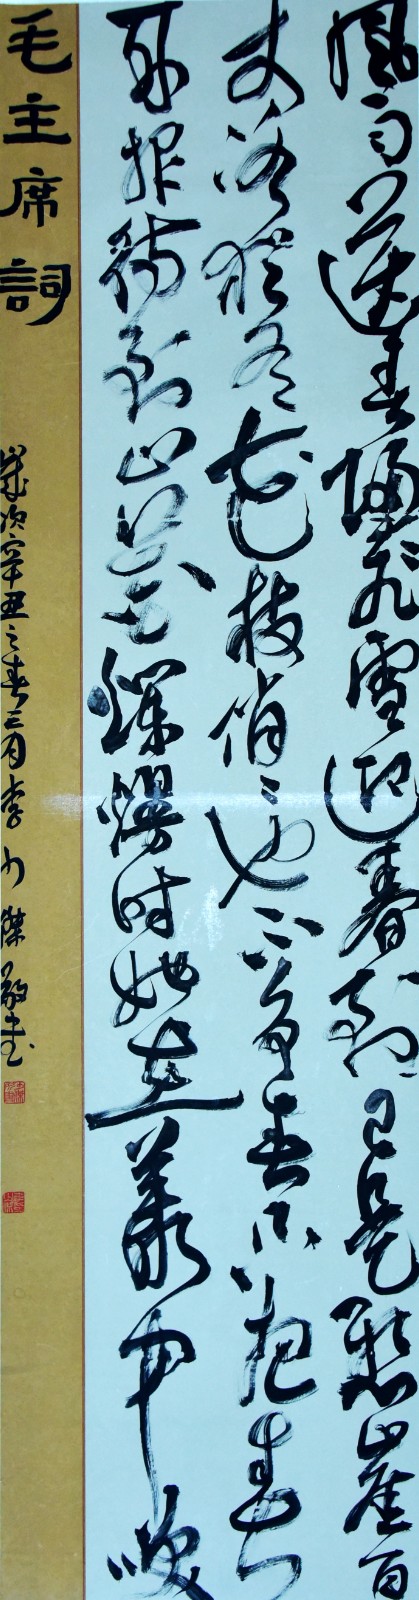 風雨送春歸飛雪迎春到已是懸崖百
丈冰猶有花枝俏々也不争春只把春
来報待到山花爛漫時她在叢中笑
毛主席詞
歲次辛丑之春三月李傑敬書